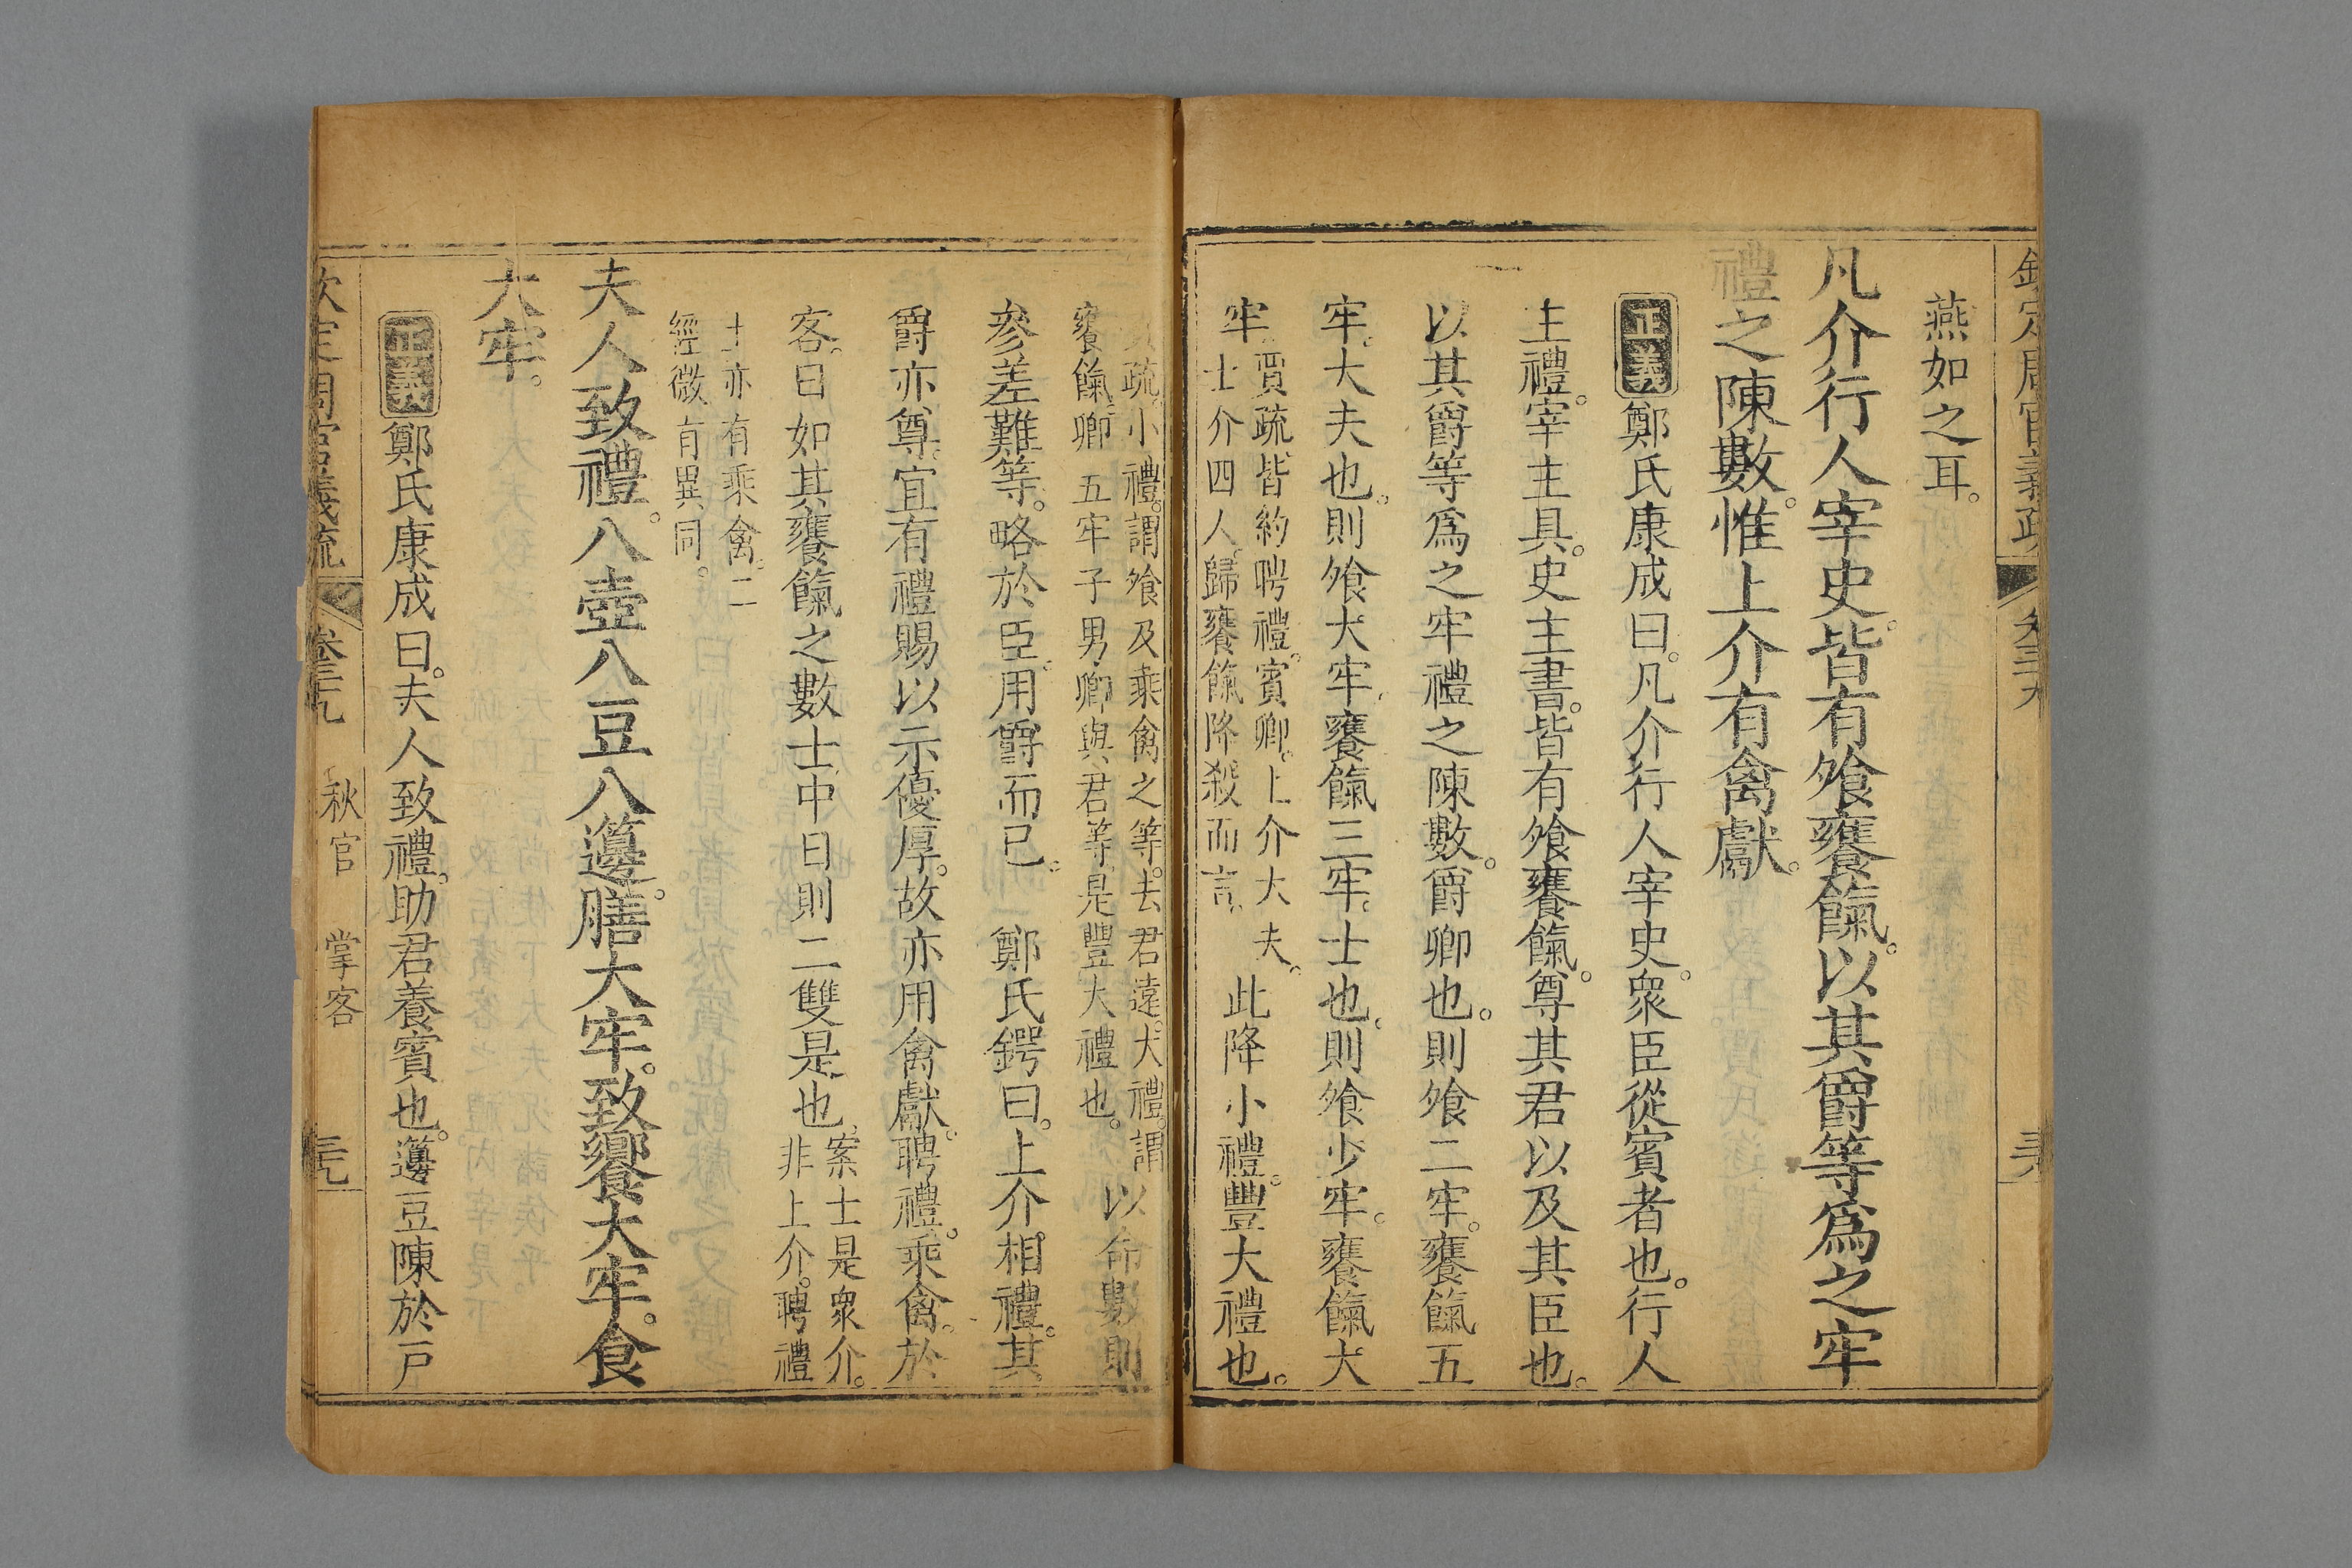 欽定周官義疏 卷三十九 三六
燕如之耳。
凡介行人宰史。皆有飧饔餼。以其爵等爲之牢
禮之陳數。惟上介有禽獻。
正義鄭氏康成曰。凡介行人宰史。衆臣從賓者也。行人
主禮。宰主具。史主書。皆有飧饔餼。尊其君以及其臣也。
以其爵等爲之牢禮之陳數。爵卿也。則飧二牢。饔餼五
牢。大夫也。則飧大牢。饔餼三牢。士也。則飧少牢。饔餼大
牢。賈疏。皆約聘禮。賓卿。上介大夫。士介四人。歸饔餼降殺而言。此降小禮。豐大禮也。
疏。小禮。謂飧及乘禽之等。去君遠。大禮。謂饔餼。卿五牢。子男卿與君等。是豐大禮也。以命數則
參差難等。略於臣。用爵而已。 鄭氏鍔曰。上介相禮。其
爵亦尊。宜有禮賜以示優厚。故亦用禽獻。聘禮。乘禽。於
客。日如其饔餼之數。士中日則二雙是也。案士是衆介。非上介。聘禮
士亦有乘禽。二經微有異同。
夫人致禮。八壺八豆八籩。膳大牢。致饗大牢。食
大牢。
正義鄭氏康成曰。夫人致禮。助君養賓也。籩豆陳於戶
欽定周官義疏 卷三十九 秋官 掌客 三七